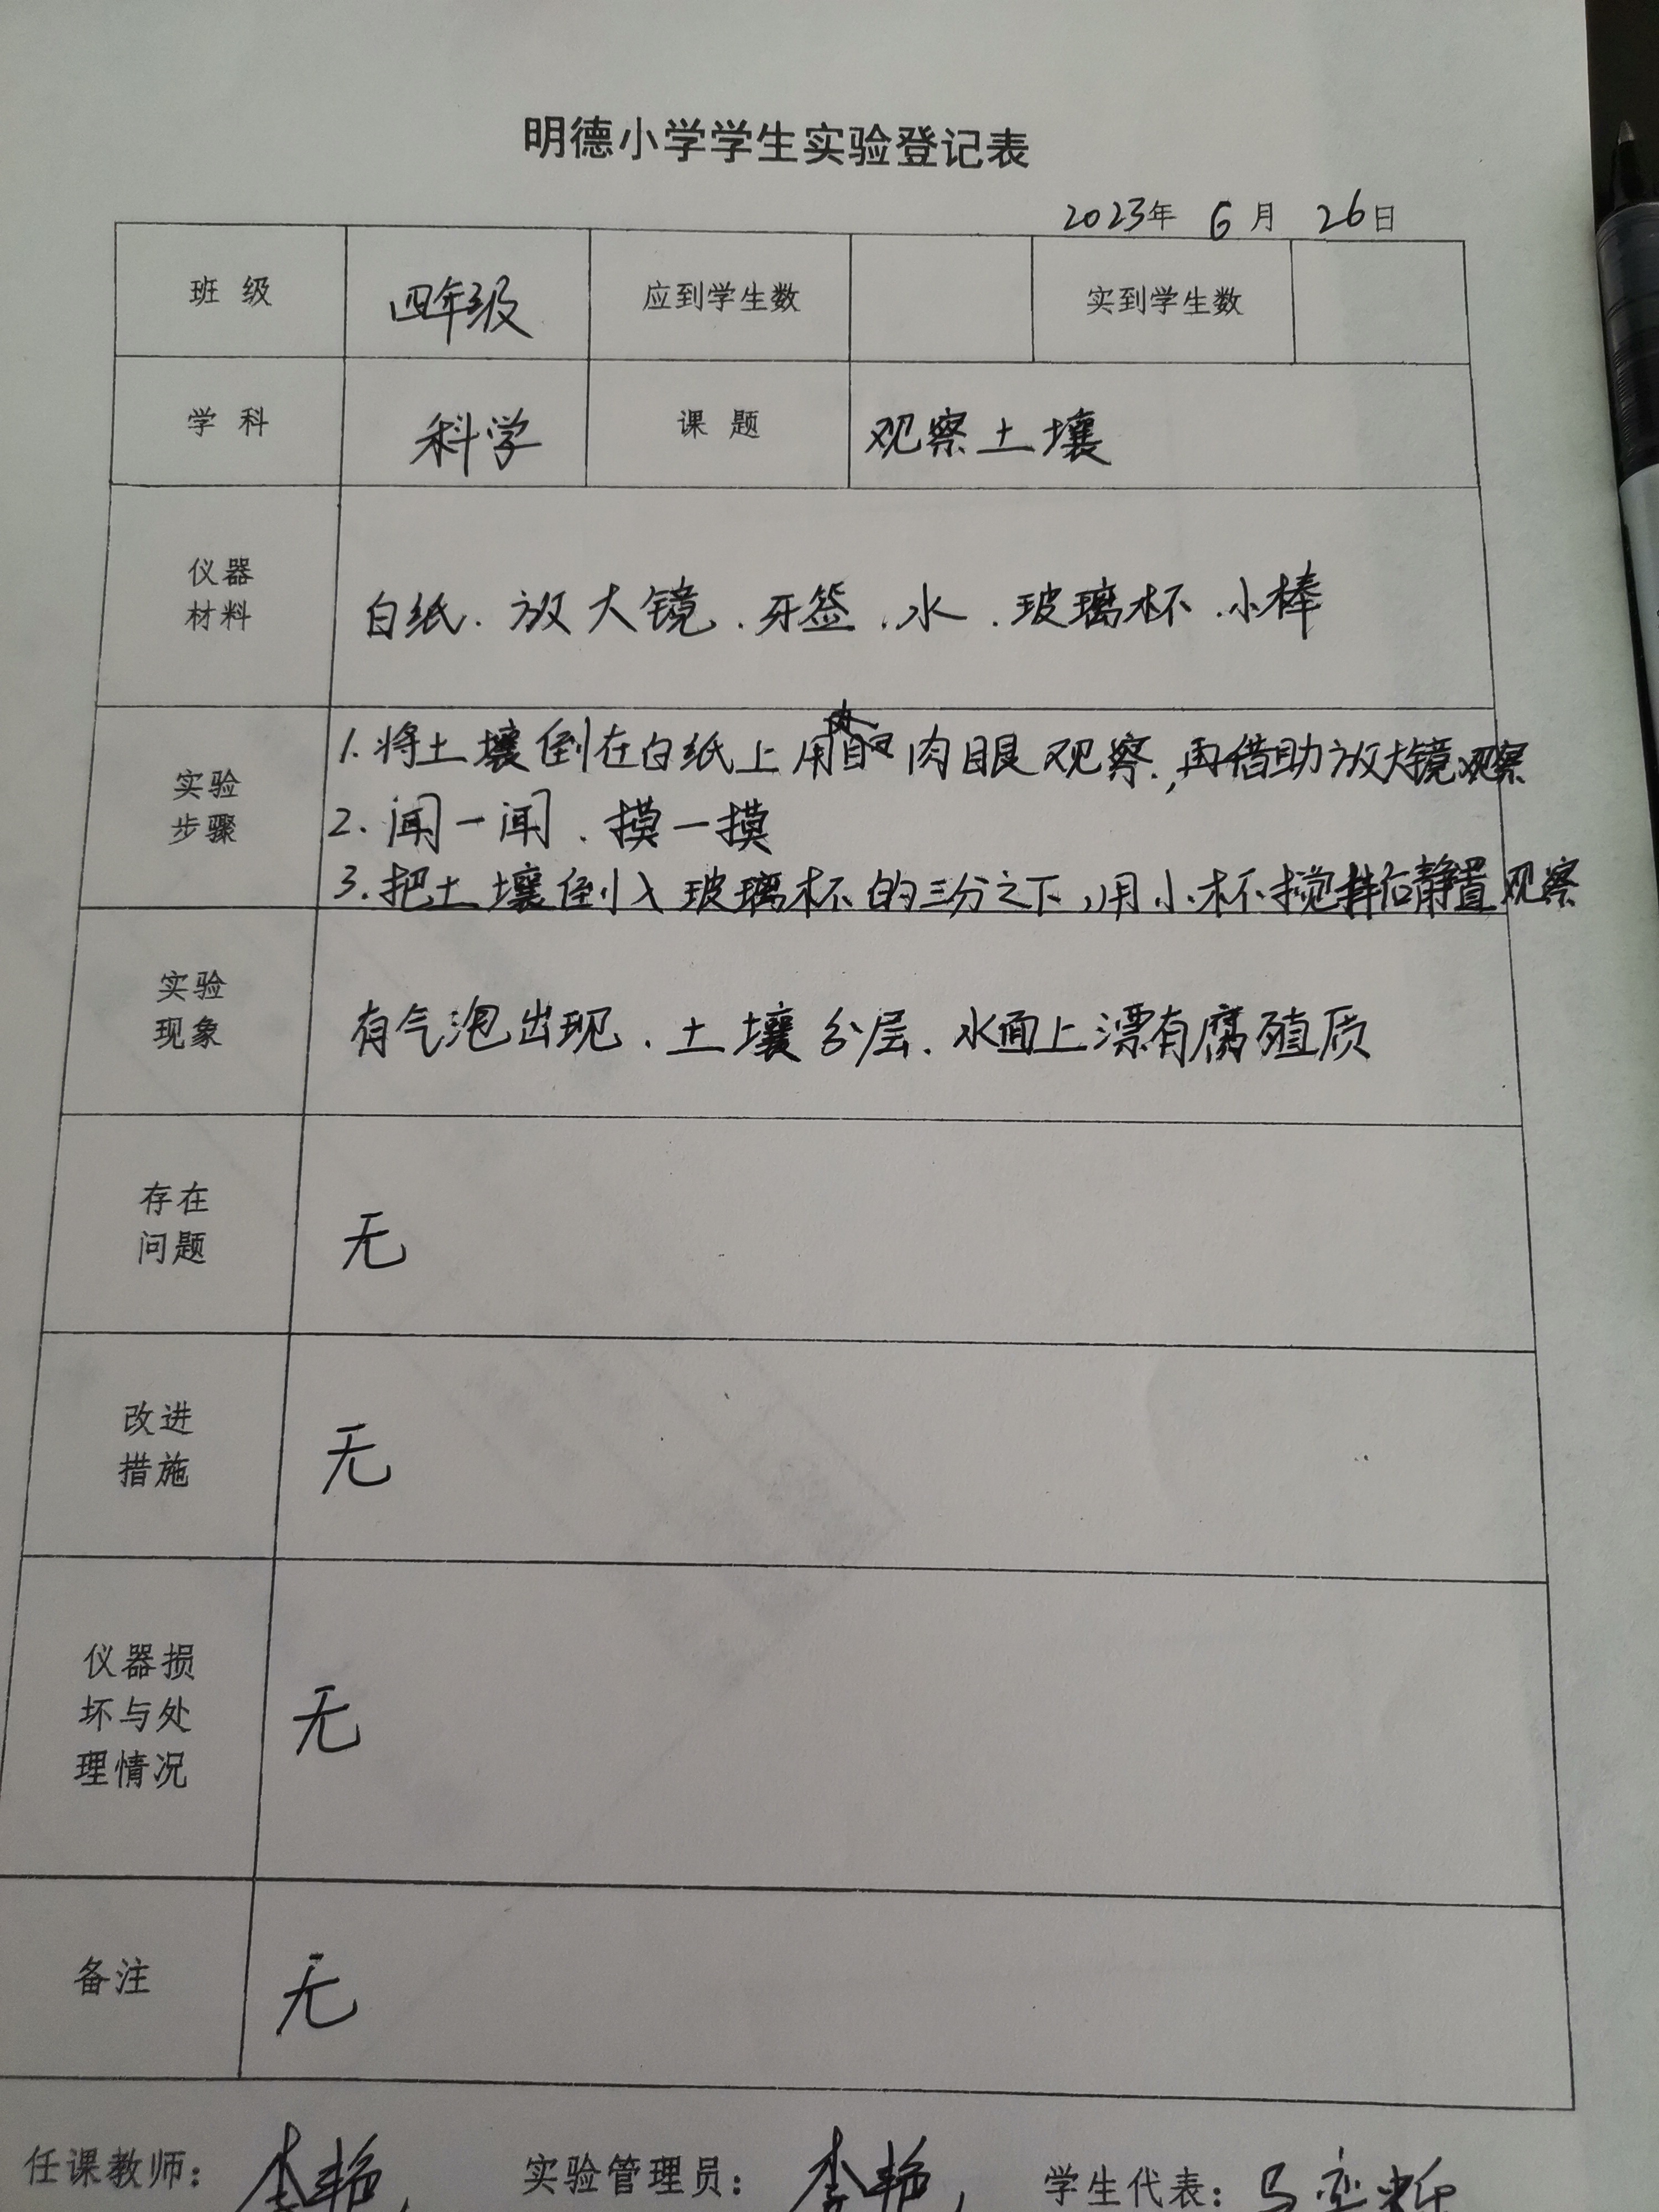 明德小学学生实验登记表
2023年 6月 26日
班级 四年级 应到学生数 实到学生数
学科 科学 课题 观察土壤
仪器
材料
白纸、放大镜、牙签、水、玻璃杯、小棒
实验
步骤
1.将土壤倒在白纸上用肉眼观察,再借助放大镜观察
2.闻一闻、摸一摸
3.把土壤倒入玻璃杯的三分之下,用小杯搅拌后静置观察
实验
现象
有气泡出现、土壤分层、水面上漂有腐殖质
存在
问题
无
改进
措施
无
仪器损
坏与处
理情况
无
备注
无
任课教师: 李艳 实验管理员: 李艳 学生代表: 马